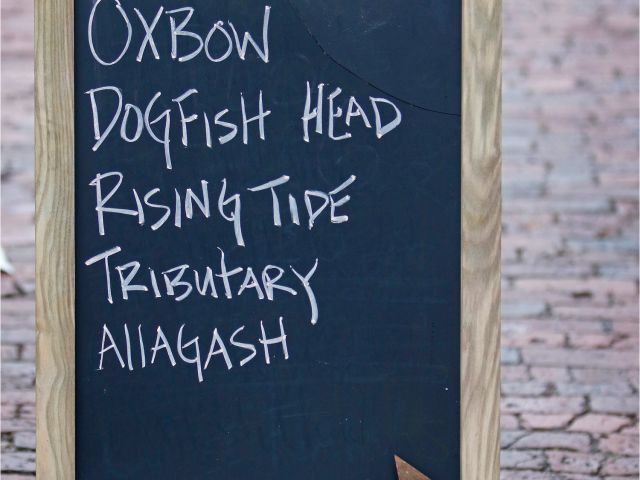 OXBOW
DOGFISH HEAD
RISING TIDE
TRIBUTARY
AllAGASH